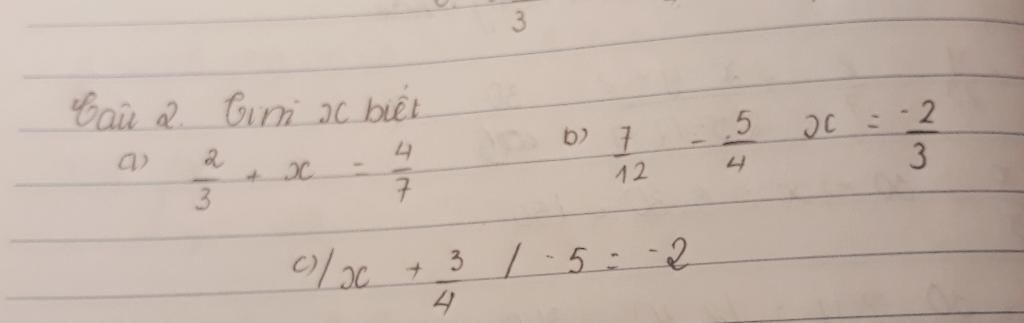 3
Câu 2. Tìm x biết
a) 2/3 + x = 4/7 b) 7/12 - 5/4 x = -2/3
c) |x + 3/4| - 5 = -2